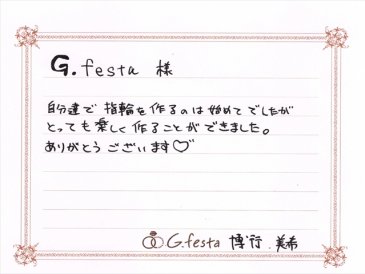 G.festa 様
自分達で 指輪を 作るのは 始めて でしたが
とっても 楽しく 作ることが できました。
ありがとう ございます♡
G.festa 博行 美希